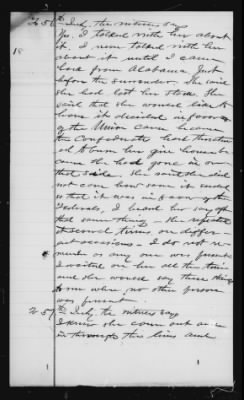 To 56th Inty, the witness says
Yes. I talked with her about
it. I never talked with her
18
about it until I came
here from Alabama just
before the surrender. She said
she had lost her stock. She
said that she would like to
have it decided in favor
of the Union cause because
the Confederates had
her house be
cause she had gone in on
that side. She said she did
not care how soon it ended
so that it was in favor of the
Federals. I heard her say
that same thing. She repeated
it several times on differ
ent occasions. I do not re-
member as any one was present
I waited on her all the time
and she would say these things
to me when no other person
was present.
To 57th Inty the witness says
I know she come out as
in through the lines and